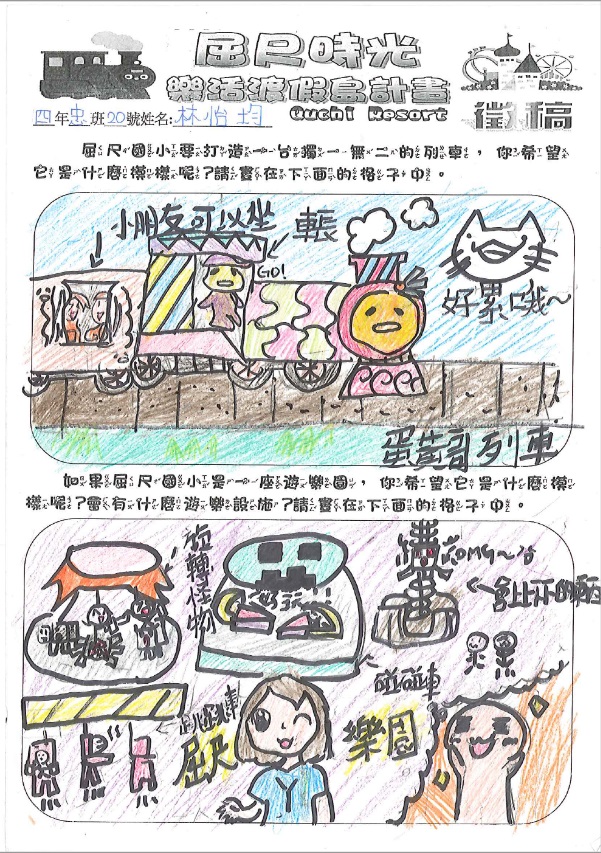 屈尺時光
樂活渡假島計畫
Quchi Resort
徵稿
四年忠班20號姓名:林怡均
屈尺國小要打造一台獨一無二的列車，你希望
它是什麼模樣呢?請畫在下面的格子中。
小朋友可以坐
GO!
好累哦~
蛋黃哥列車
如果屈尺國小是一座遊樂園，你希望它是什麼模
樣呢?會有什麼遊樂設施?請畫在下面的格子中。
旋轉怪物
好玩
OMG~
碰碰車
屈尺
樂園